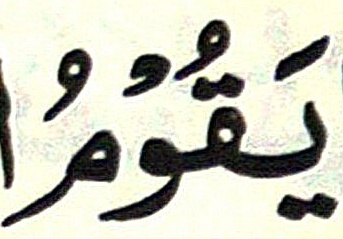 يَقُوْمُ